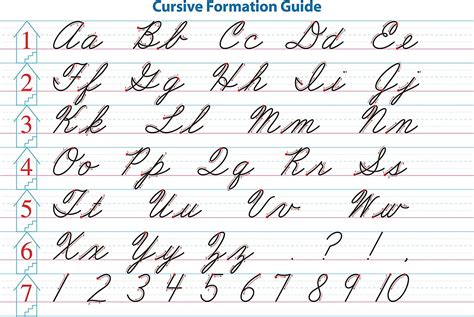 Cursive Formation Guide
1 Aa Bb Cc Dd Ee
2 Ff Gg Hh Ii Jj
3 Kk Ll Mm Nn
4 Oo Pp Qq Rr Ss
5 Tt Uu Vv Ww
6 Xx Yy Zz . ? ! ,
7 1 2 3 4 5 6 7 8 9 10